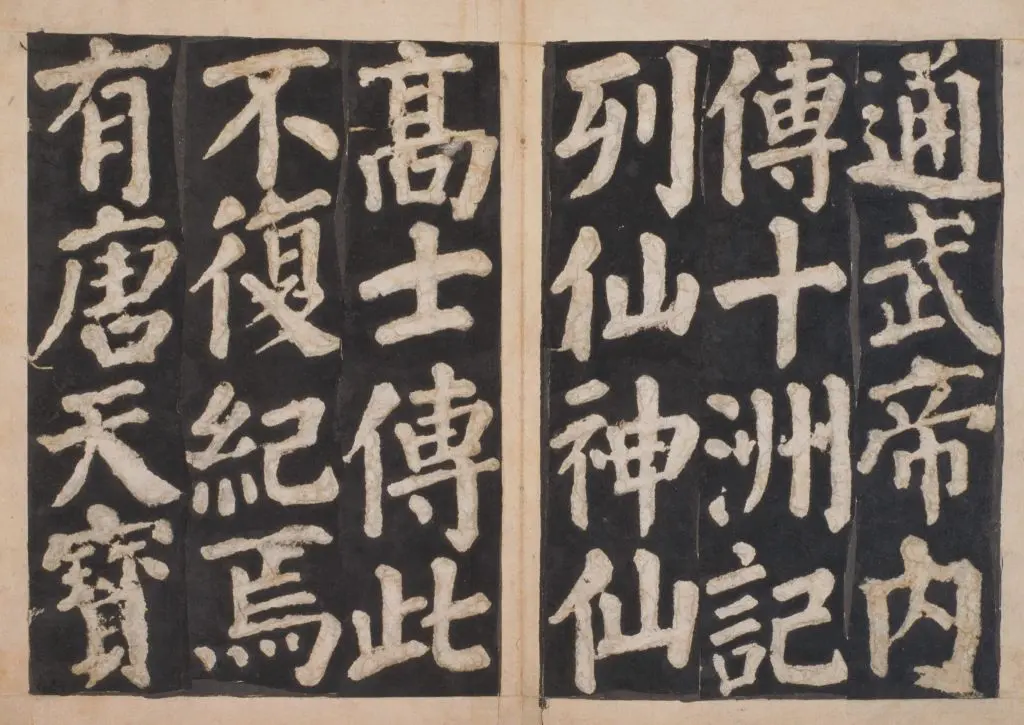 通武帝内
傳十洲記
列仙神仙
髙士傳此
不復紀焉
有唐天寶